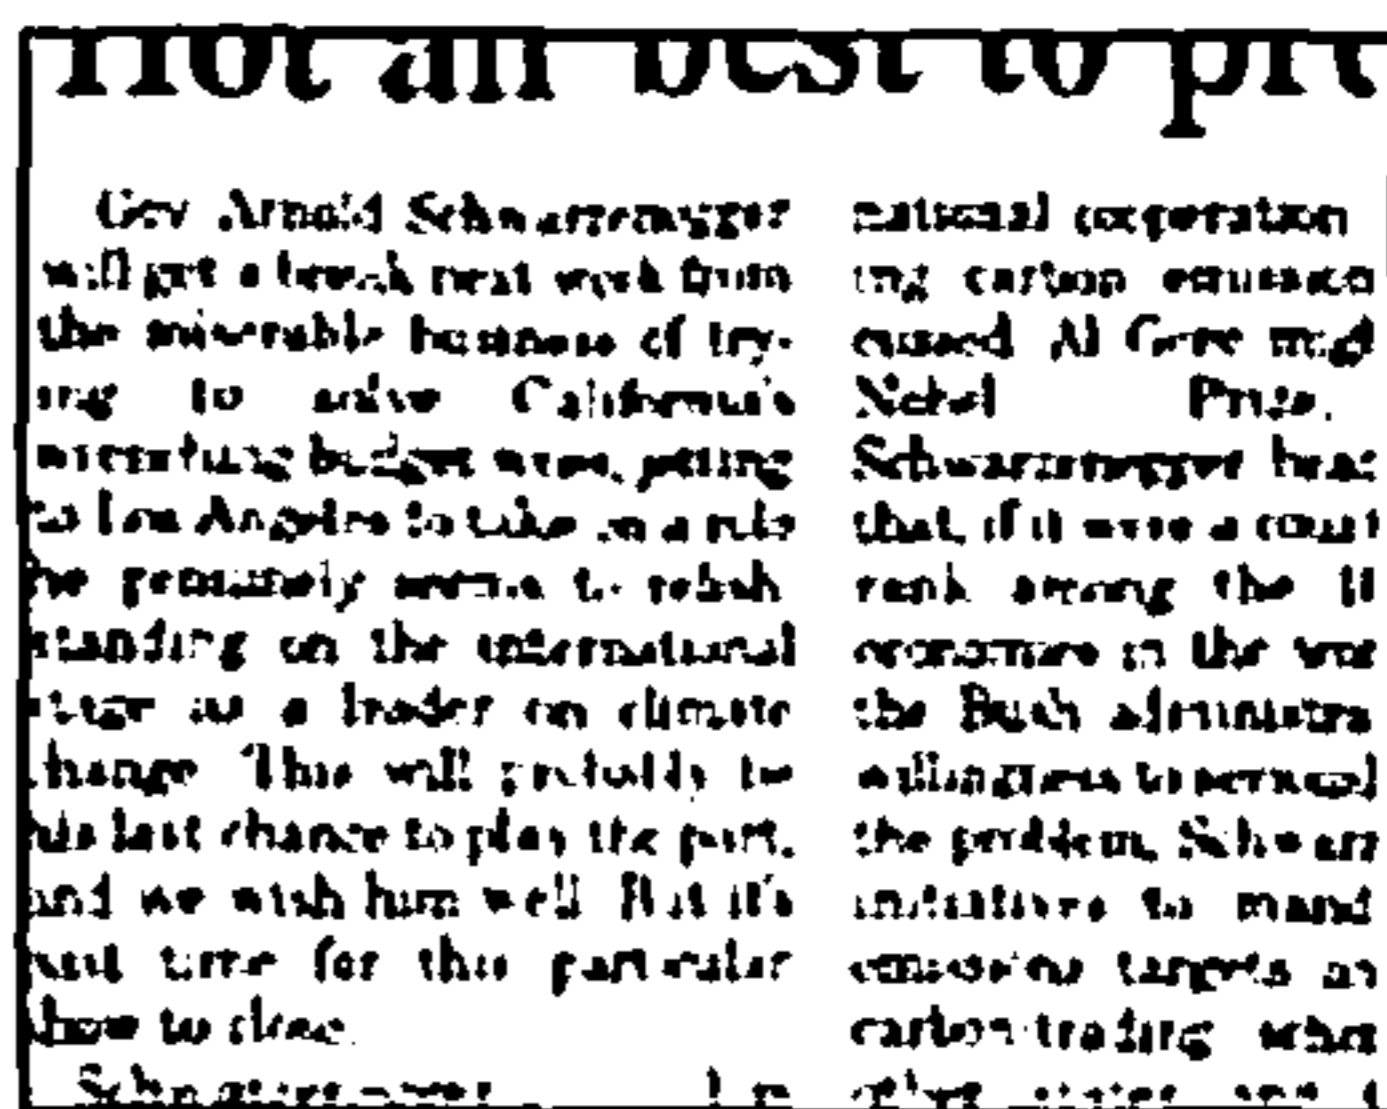 not an best to pre
Gov Arnold Schwarzenegger
will get a break next week from
the miserable business of try-
ing to solve California's
budget woes, jetting
to Los Angeles to take on a role
he genuinely seems to relish
standing on the international
stage as a leader on climate
change This will probably be
his last chance to play the part,
and we wish him well But it's
past time for this particular
show to close
national cooperation
ing carbon emission
cussed Al Gore
Nobel Prize,
Schwarzenegger
that, if it were a
rank among the
economies in the
the Bush
willingness to
the problem,
initiatives to
emissions targets
carbon-trading